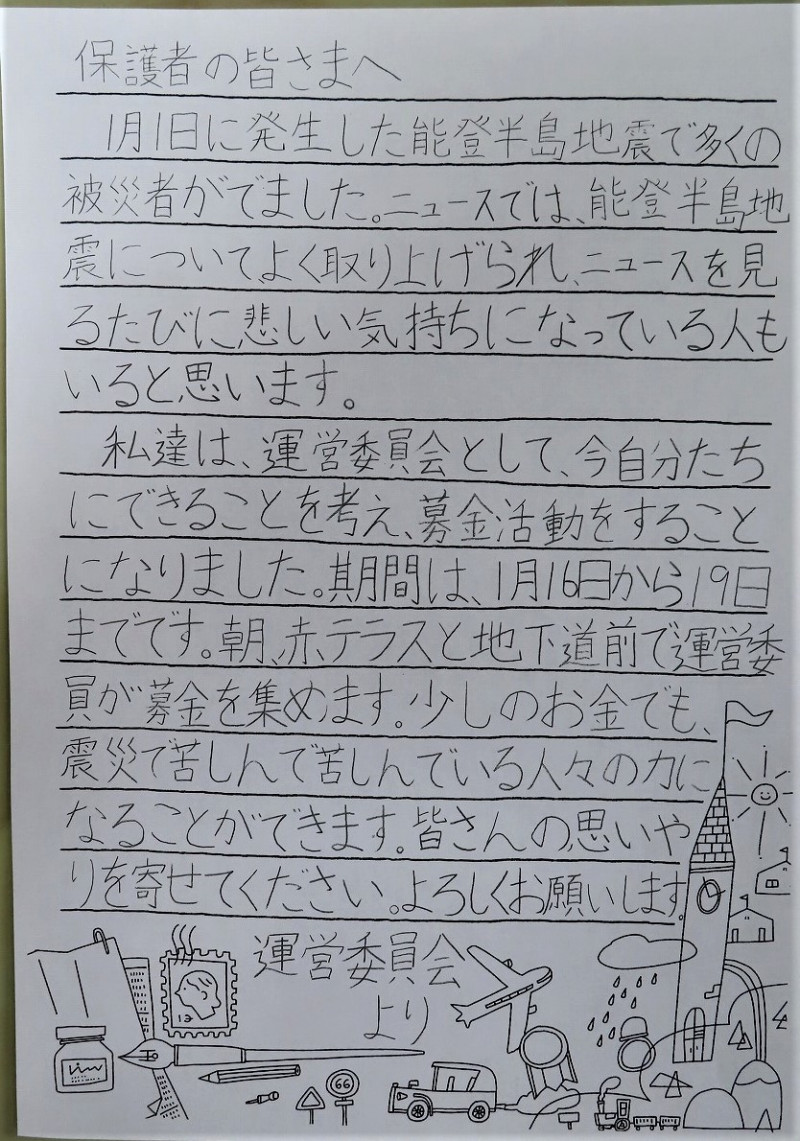 保護者の皆さまへ
1月1日に発生した能登半島地震で多くの
被災者がでました。ニュースでは、能登半島地
震について、よく取り上げられ、ニュースを見
るたびに、悲しい気持ちになっている人も
いると、思います。
私達は、運営委員会として、今自分たち
にできることを考え、募金活動をすること
になりました。期間は、1月16日から19日
までです。朝、赤テラスと地下道前で運営委
員が募金を集めます。少しのお金でも、
震災で苦しんで苦しんでいる人々の力に
なることができます。皆さんの思いや
りを寄せてください。よろしくお願いします。
運営委員会
より
12
66